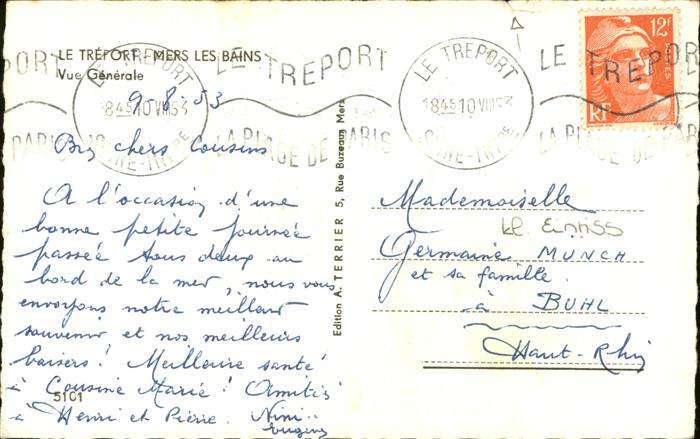 LE TRÉPORT - MERS LES BAINS
Vue Générale
LE TREPORT
18 45 10 VIII 53
SEINE-INFRE
LE TREPORT
LA PLAGE DE PARIS
LE TREPORT
18 45 10 VIII 53
SEINE-INFRE
LE TREPORT
LA PLAGE DE PARIS
12F
POSTES
RF
9-8-53
Bien chers Cousins
A l'occasion d'une
bonne petite journée
passée tous deux au
bord de la mer, nous vous
envoyons notre meilleur
souvenir et nos meilleurs
baisers! Meilleure santé
à Cousine Marie! Amitiés
à Henri et Pierre. Nini
5101
Edition A. TERRIER 5, Rue Buzeaux Mers
Mademoiselle
Germaine MUNCH
et sa famille
à BUHL
Haut-Rhin